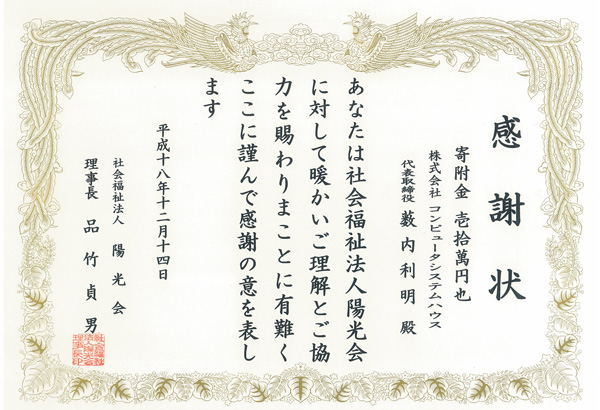 感謝状
寄附金 壱拾萬円也
株式会社 コンピュータシステムハウス
代表取締役 薮内利明 殿
あなたは社会福祉法人陽光会
に対して暖かいご理解とご協
力を賜わりまことに有難く
ここに謹んで感謝の意を表し
ます
平成十八年十二月十四日
社会福祉法人 陽光会
理事長 品竹貞男